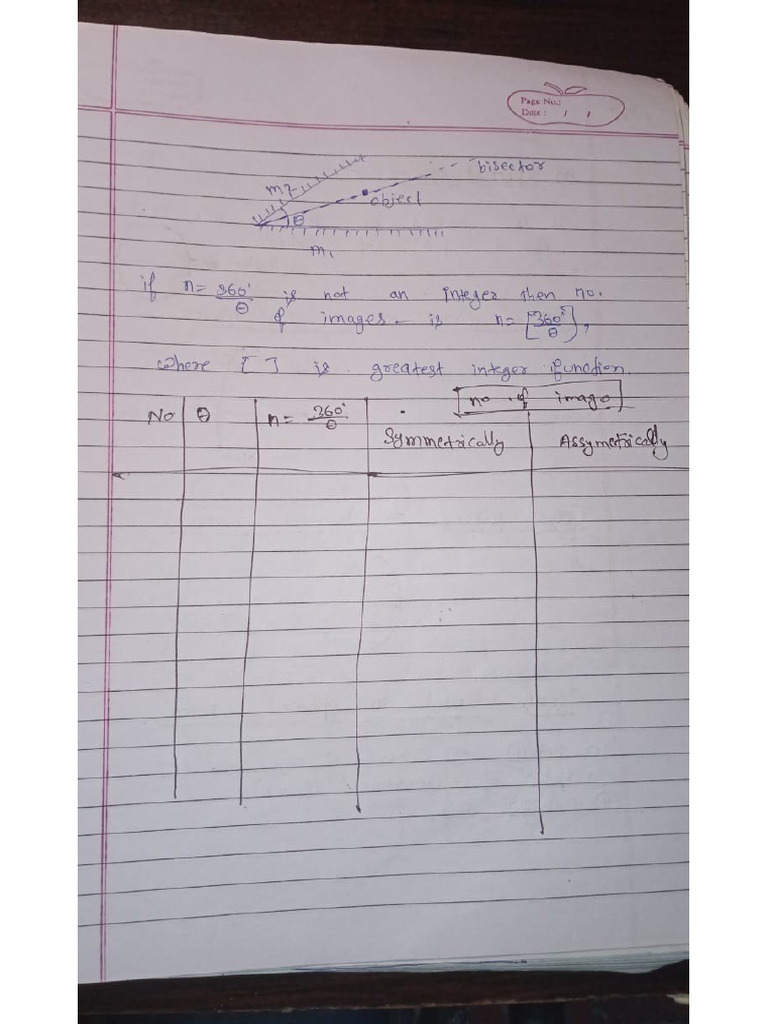 Page No.:
Date: / /
bisector
m2
object
θ
m1
if n= 360° is not an integer then no.
θ
of images is n= [360°/θ],
where [ ] is greatest integer function.
No θ n= 360°/θ no. of image
Symmetrically Assymetrically